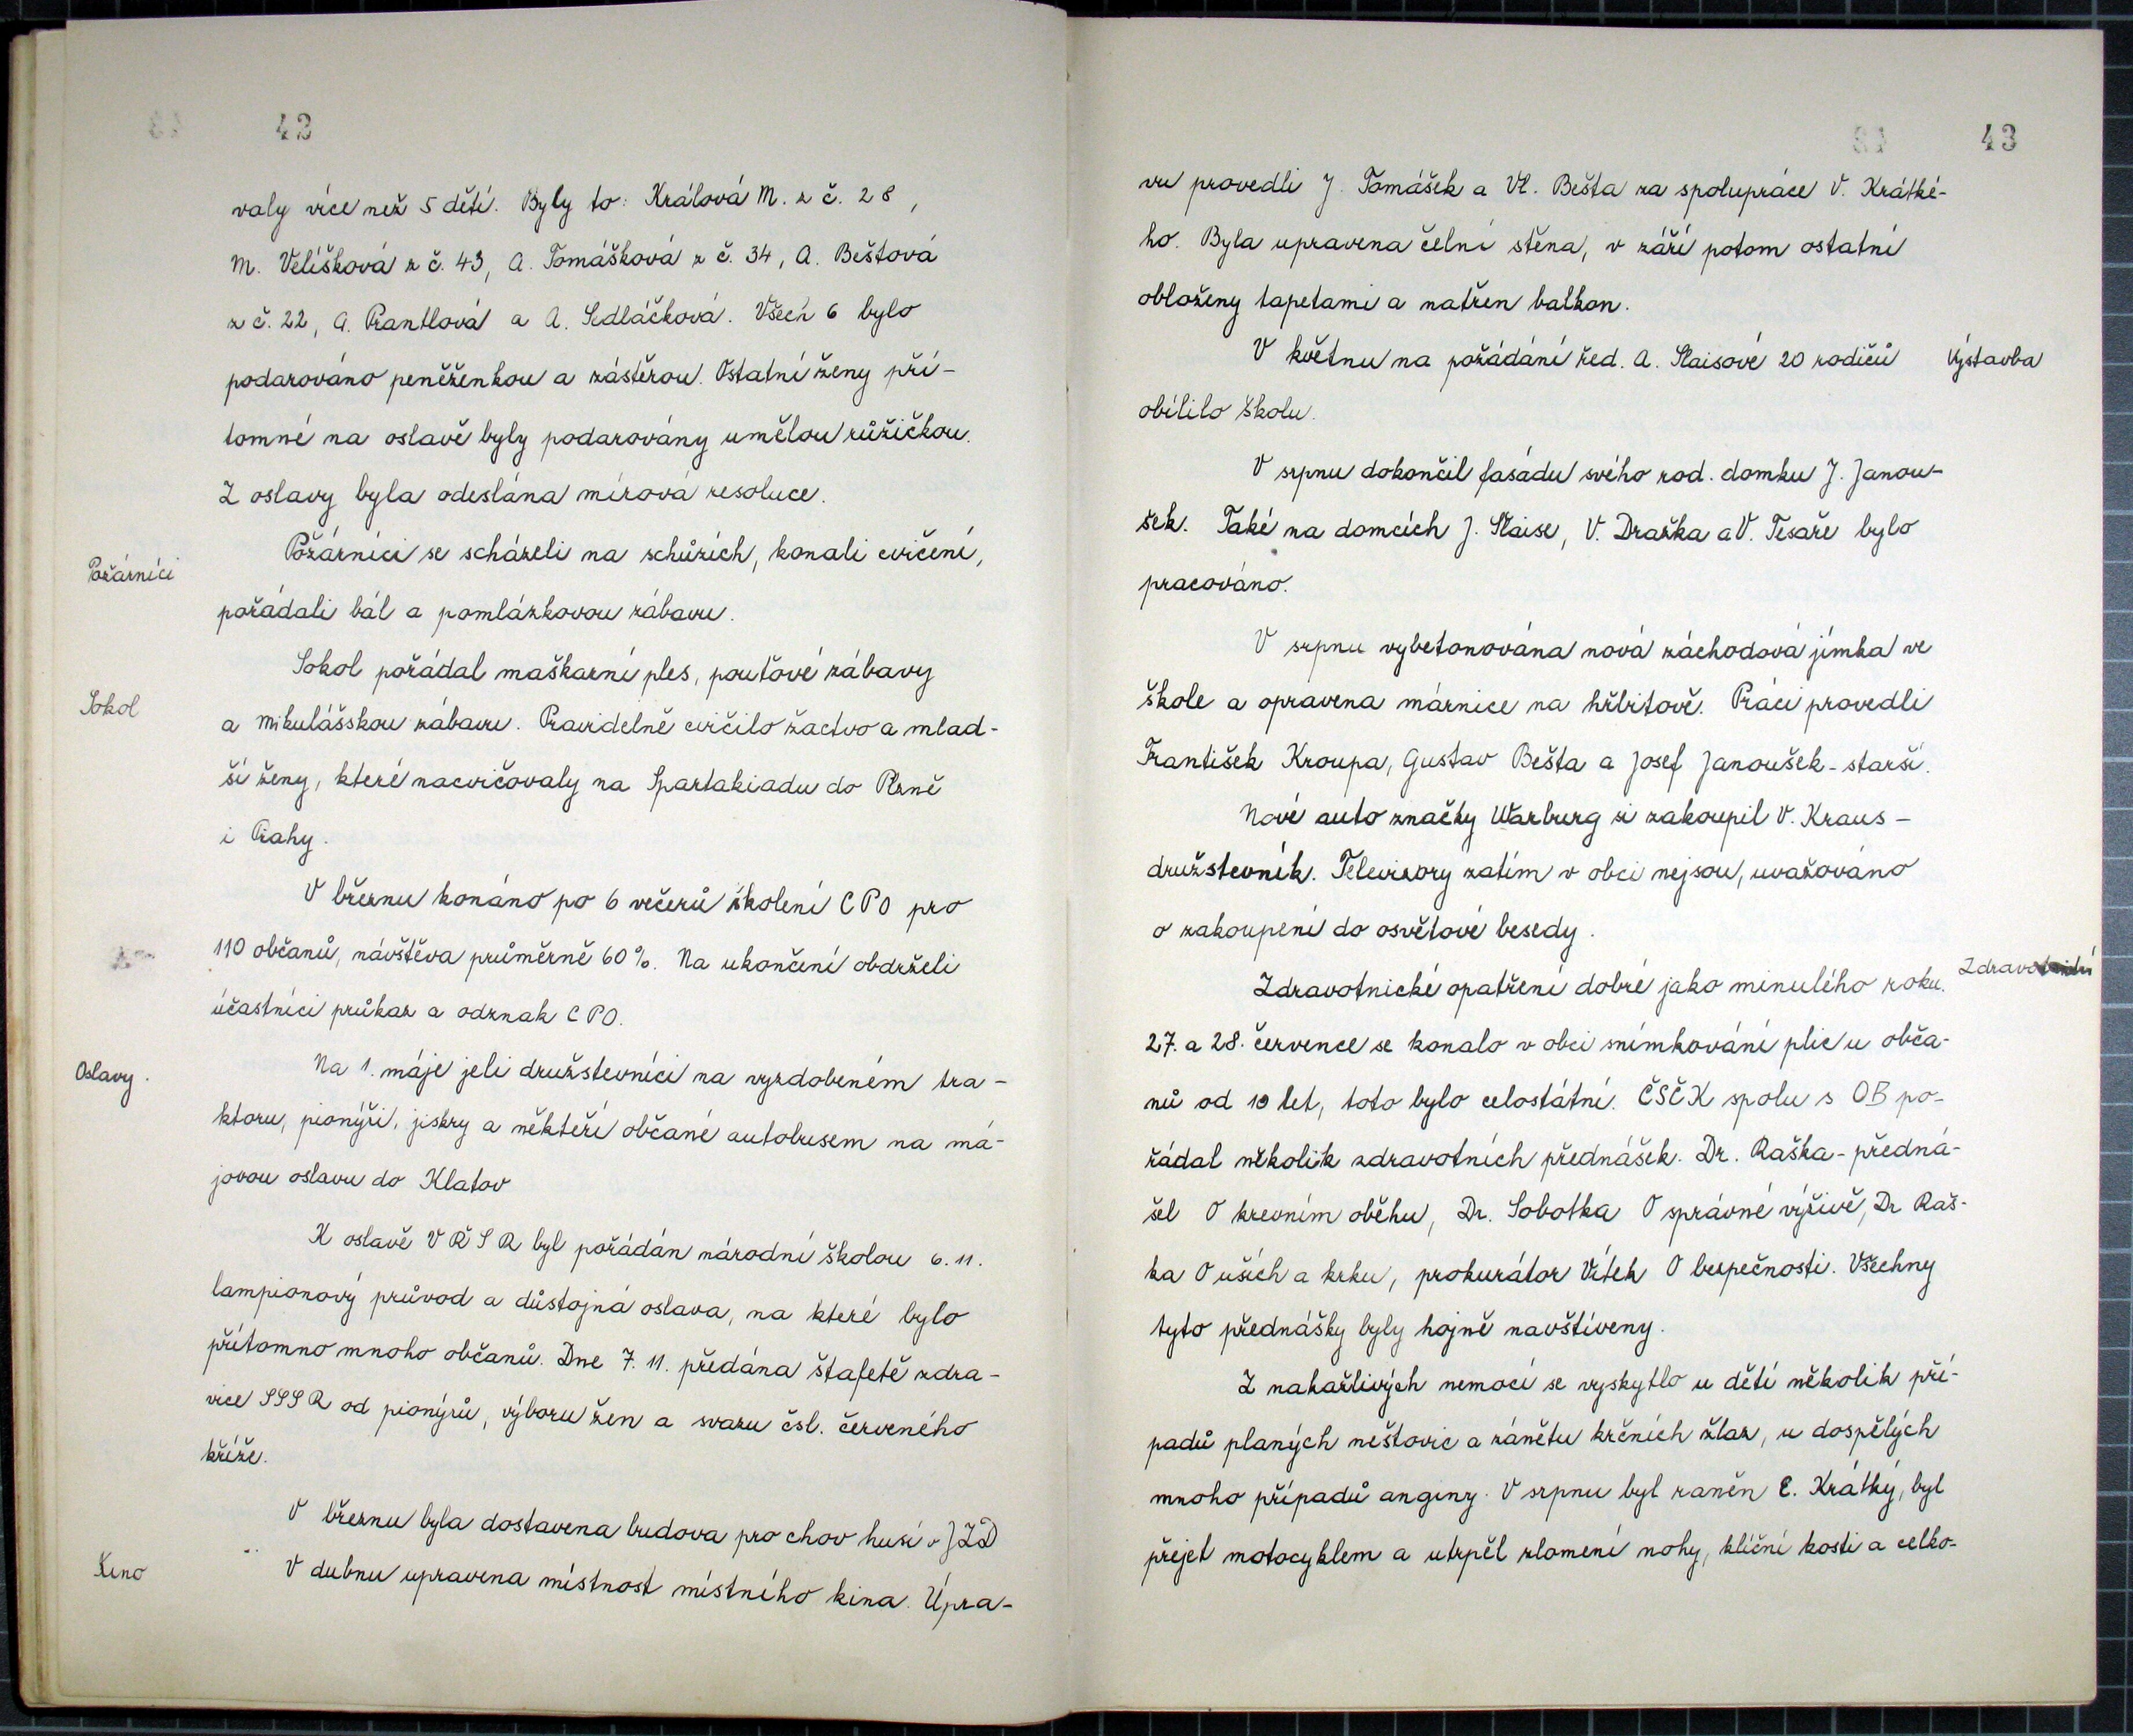 42
valy více než 5 dětí. Byly to: Králová M. z č. 28,
M. Velíšková z č. 43, A. Tomášková z č. 34, A. Beštová
z č. 22, A. Prantlová a A. Sedláčková. Všech 6 bylo
podarováno peněženkou a zástěrou. Ostatní ženy pří-
tomné na oslavě byly podarovány umělou růžičkou.
Z oslavy byla odeslána mírová resoluce.
Požárníci
Požárníci se scházeli na schůzích, konali cvičení,
pořádali bál a pomlázkovou zábavu.
Sokol
Sokol pořádal maškarní ples, pouťové zábavy
a mikulášskou zábavu. Pravidelně cvičilo žactvo a mlad-
ší ženy, které nacvičovaly na Spartakiadu do Plzně
i Prahy.
V březnu konáno po 6 večerů školení CPO pro
110 občanů, návštěva průměrně 60%. Na ukončení obdrželi
účastníci průkaz a odznak CPO.
Oslavy.
Na 1. máje jeli družstevníci na vyzdobeném tra-
ktoru, pionýři, jiskry a někteří občané autobusem na má-
jovou oslavu do Klatov
K oslavě VŘSR byl pořádán národní školou 6. 11.
lampionový průvod a důstojná oslava, na které bylo
přítomno mnoho občanů. Dne 7. 11. předána štafetě zdra-
vice SSSR od pionýrů, výboru žen a svazu čsl. červeného
kříže.
V březnu byla dostavena budova pro chov husí v JZD
Kino
V dubnu upravena místnost místního kina. Úpra-
43
vu provedli J. Tomášek a Vl. Bešta za spolupráce V. Krátké-
ho. Byla upravena čelní stěna, v září potom ostatní
obloženy tapetami a natřen balkon.
Výstavba
V květnu na požádání řed. A. Slaisové 20 rodičů
obílilo školu.
V srpnu dokončil fasádu svého rod. domku J. Janou-
šek. Také na domcích J. Slaise, V. Dražka a V. Tesaře bylo
pracováno.
V srpnu vybetonována nová záchodová jímka ve
škole a opravena márnice na hřbitově. Práci provedli
František Kroupa, Gustav Bešta a Josef Janoušek-starší.
Nové auto značky Warburg si zakoupil V. Kraus-
družstevník. Televizory zatím v obci nejsou, uvažováno
o zakoupení do osvětové besedy.
Zdravot
Zdravotnické opatření dobré jako minulého roku.
27. a 28. července se konalo v obci snímkování plic u obča-
nů od 10 let, toto bylo celostátní. ČSČK spolu s OB po-
řádal několik zdravotních přednášek. Dr. Raška-předná-
šel O krevním oběhu, Dr. Sobotka O správné výživě, Dr Raš-
ka O uších a krku, prokurátor Vítek O bezpečnosti. Všechny
tyto přednášky byly hojně navštíveny.
Z nakažlivých nemocí se vyskytlo u dětí několik pří-
padů planých neštovic a zánětu krčních žlaz, u dospělých
mnoho případů anginy. V srpnu byl raněn E. Krátký, byl
přejet motocyklem a utrpěl zlomení nohy, klíční kosti a celko-